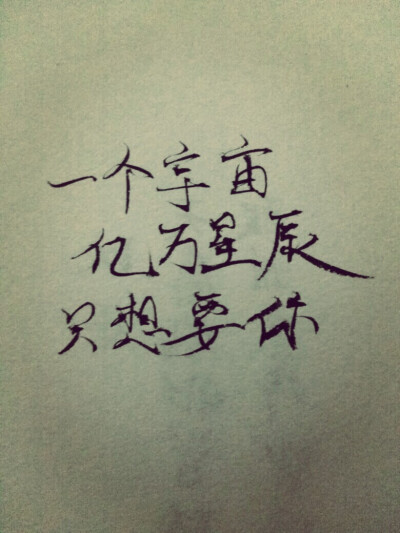 一个宇宙
亿万星辰
只想要你